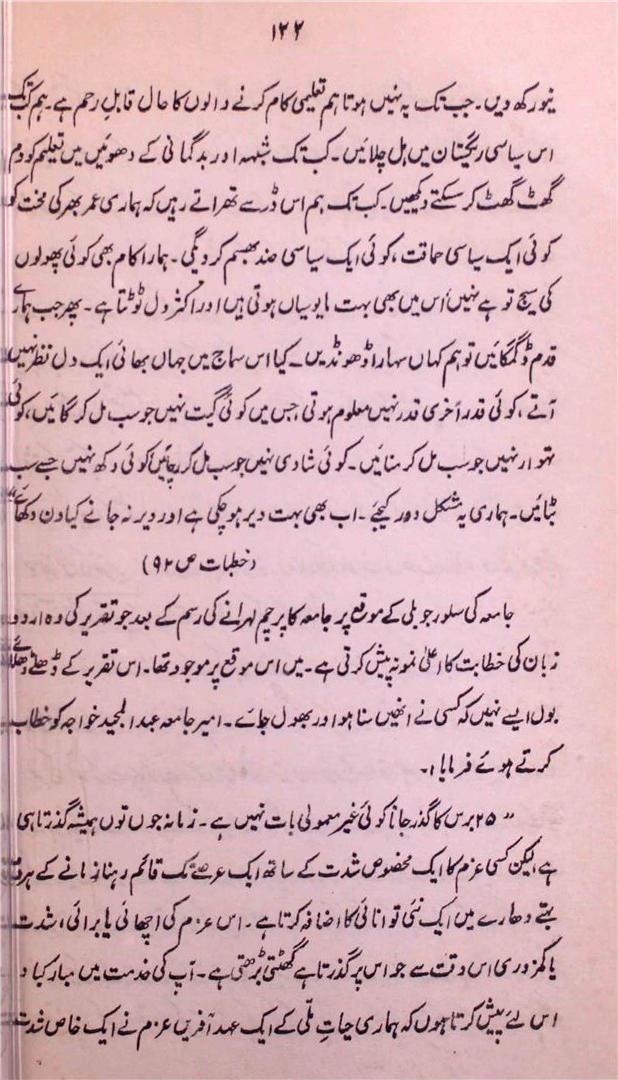 ۱۲۲
نیو رکھ دیں۔ جب تک یہ نہیں ہوتا ہم تعلیمی کام کرنے والوں کا حال قابلِ رحم ہے۔ ہم کب تک
اس سیاسی ریگستان میں ہل چلائیں۔ کب تک شبہہ اور بدگمانی کے دھوئیں میں تعلیم کو دم
گھٹ گھٹ کر سسکتے دیکھیں۔ کب تک ہم اس ڈر سے تھراتے رہیں کہ ہماری عمر بھر کی محنت کو
کوئی ایک سیاسی حماقت، کوئی ایک سیاسی ضد بھسم کر دیگی۔ ہمارا کام بھی کوئی پھولوں
کی سیج تو ہے نہیں اُس میں بھی بہت مایوسیاں ہوتی ہیں اور اکثر دل ٹوٹتا ہے۔ پھر جب ہمارے
قدم ڈگمگائیں تو ہم کہاں سہارا ڈھونڈیں۔ کیا اس سماج میں جہاں بھائی ایک دل نظر نہیں
آتے، کوئی قدر آخری قدر نہیں معلوم ہوتی، جس میں کوئی گیت نہیں جو سب مل کر گائیں، کوئی
تہوار نہیں جو سب مل کر منائیں۔ کوئی شادی نہیں جو سب مل کر رچائیں کوئی دکھ نہیں جسے سب
بٹائیں۔ ہماری یہ مشکل دور کیجئے۔ اب بھی بہت دیر ہوچکی ہے اور دیر نہ جانے کیا دن دکھائے"
(خطبات ص ۹۲)
جامعہ کی سلور جوبلی کے موقع پر جامعہ کا پرچم لہرانے کی رسم کے بعد جو تقریر کی وہ اردو
زبان کی خطابت کا اعلیٰ نمونہ پیش کرتی ہے۔ میں اس موقع پر موجود تھا۔ اس تقریر کے ڈھلے ڈھلائے
بول ایسے نہیں کہ کسی نے انھیں سنا ہو اور بھول جائے۔ امیر جامعہ عبدالمجید خواجہ کو خطاب
کرتے ہوئے فرمایا:۔
"۲۵ برس کا گذر جانا کوئی غیر معمولی بات نہیں ہے۔ زمانہ جوں توں ہمیشہ گذرتا ہی
ہے، لیکن کسی عزم کا ایک مخصوص شدت کے ساتھ ایک عرصے تک قائم رہنا زمانے کے ہر وقت
بہتے دھارے میں ایک نئی توانائی کا اضافہ کرتا ہے۔ اس عزم کی اچھائی یا برائی، شدت
یا کمزوری اس وقت سے جو اس پر گذرتا ہے گھٹتی بڑھتی ہے۔ آپ کی خدمت میں مبارکباد
اس لئے پیش کرتا ہوں کہ ہماری حیاتِ ملّی کے ایک عہد آفریں عزم نے ایک خاص شدت